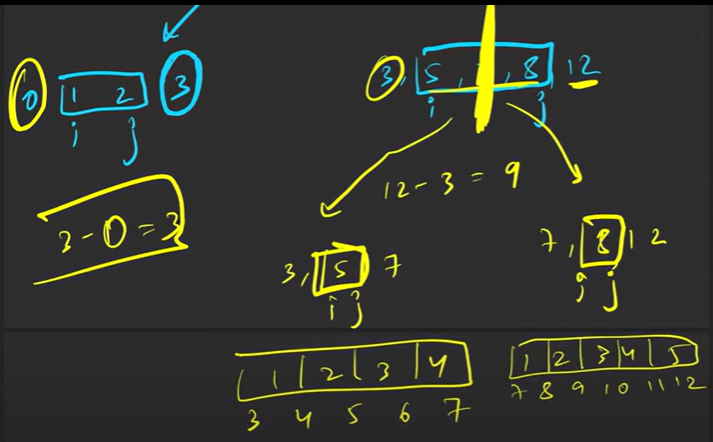 0 1 2 3
i j
3 - 0 = 3
3, 5, , 8, 12
i j
12 - 3 = 9
3, 5 7
i j
7, 8 12
i j
1 2 3 4
3 4 5 6 7
1 2 3 4 5
7 8 9 10 11 12